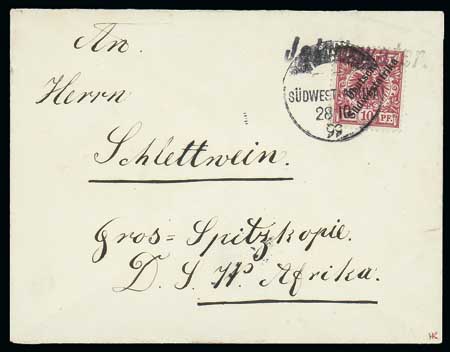 An.
Herrn
Schlettwein.
Gros=Spitzkopie.
D. S. W. Afrika.
SÜDWEST
28 10
99
Südwest-Afrika
10 PF.
HK